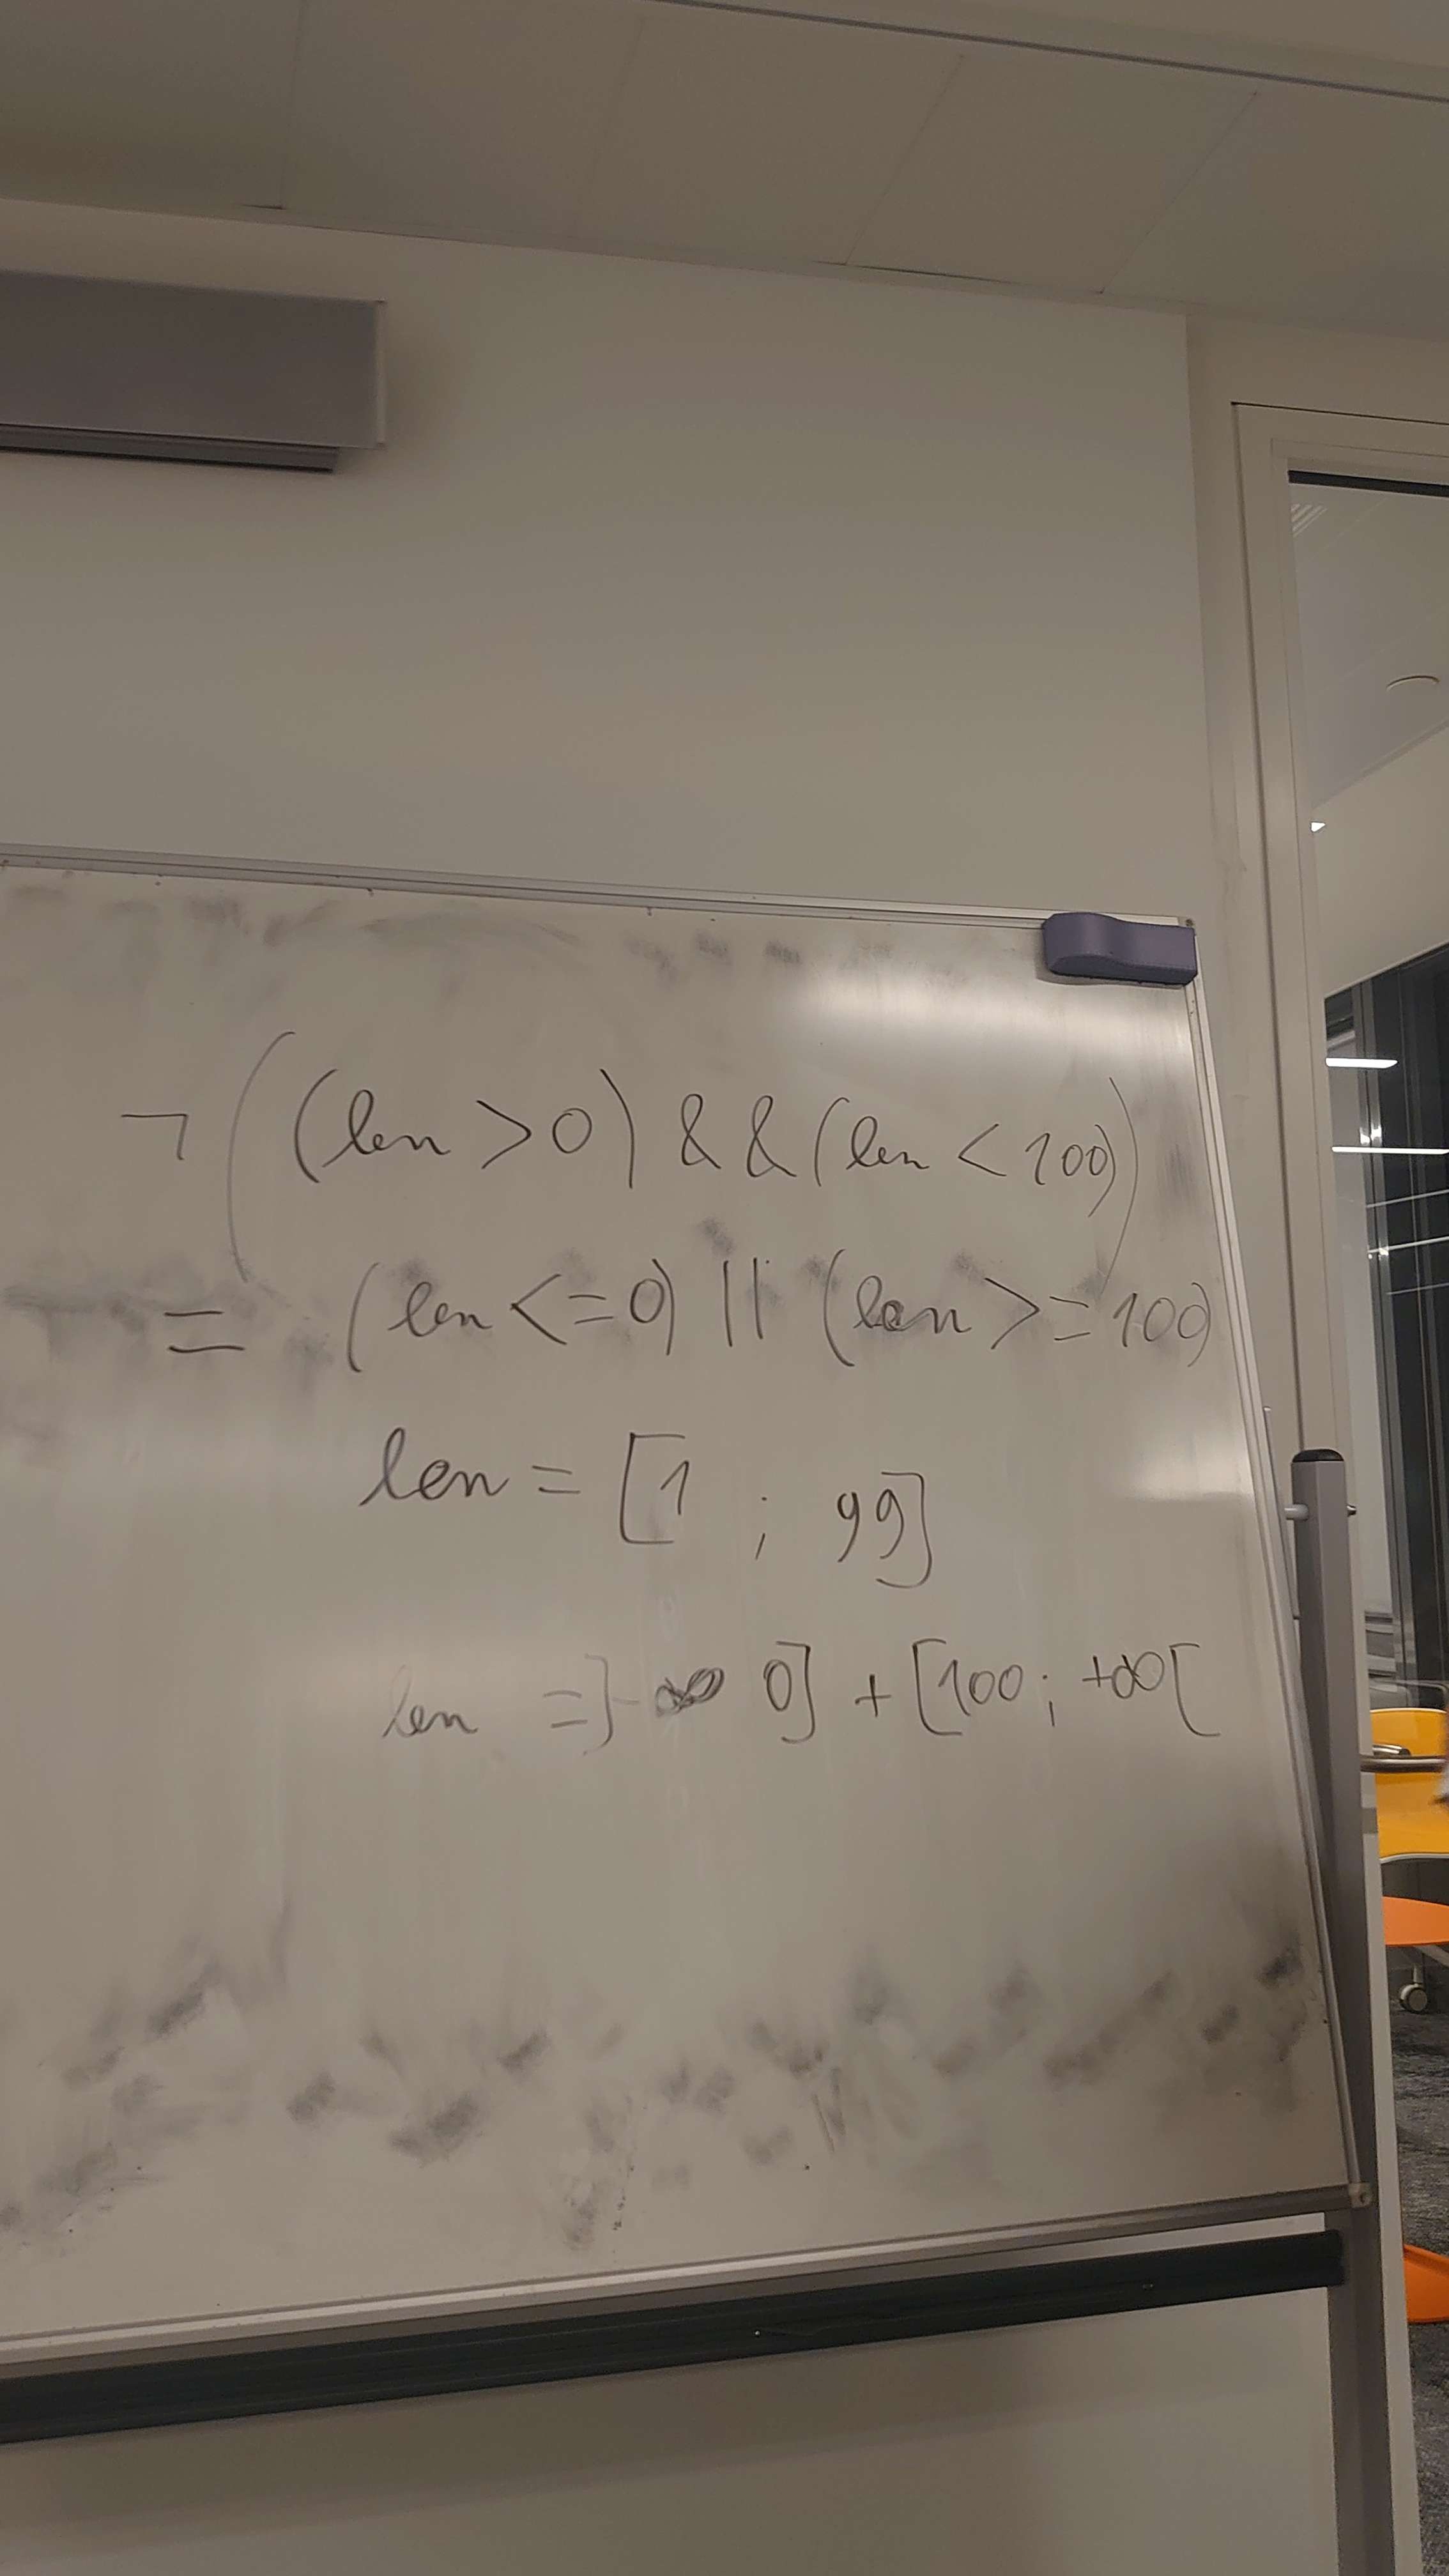 ¬((len > 0) && (len < 100))
= (len <= 0) || (len >= 100)
len = [1 ; 99]
len = ]-∞ 0] + [100 ; +∞[